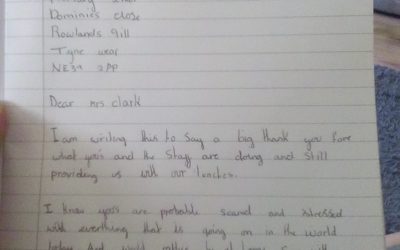 Dominies close
Rowlands Gill
Tyne wear
NE39 2PP
Dear mrs clark
I am writing this to say a big thank you fore
what yous and the staff are doing and still
providing us with our lunches.
I know yous are probable scared and stressed
with everything that is going on in the world
today And would rather be at home